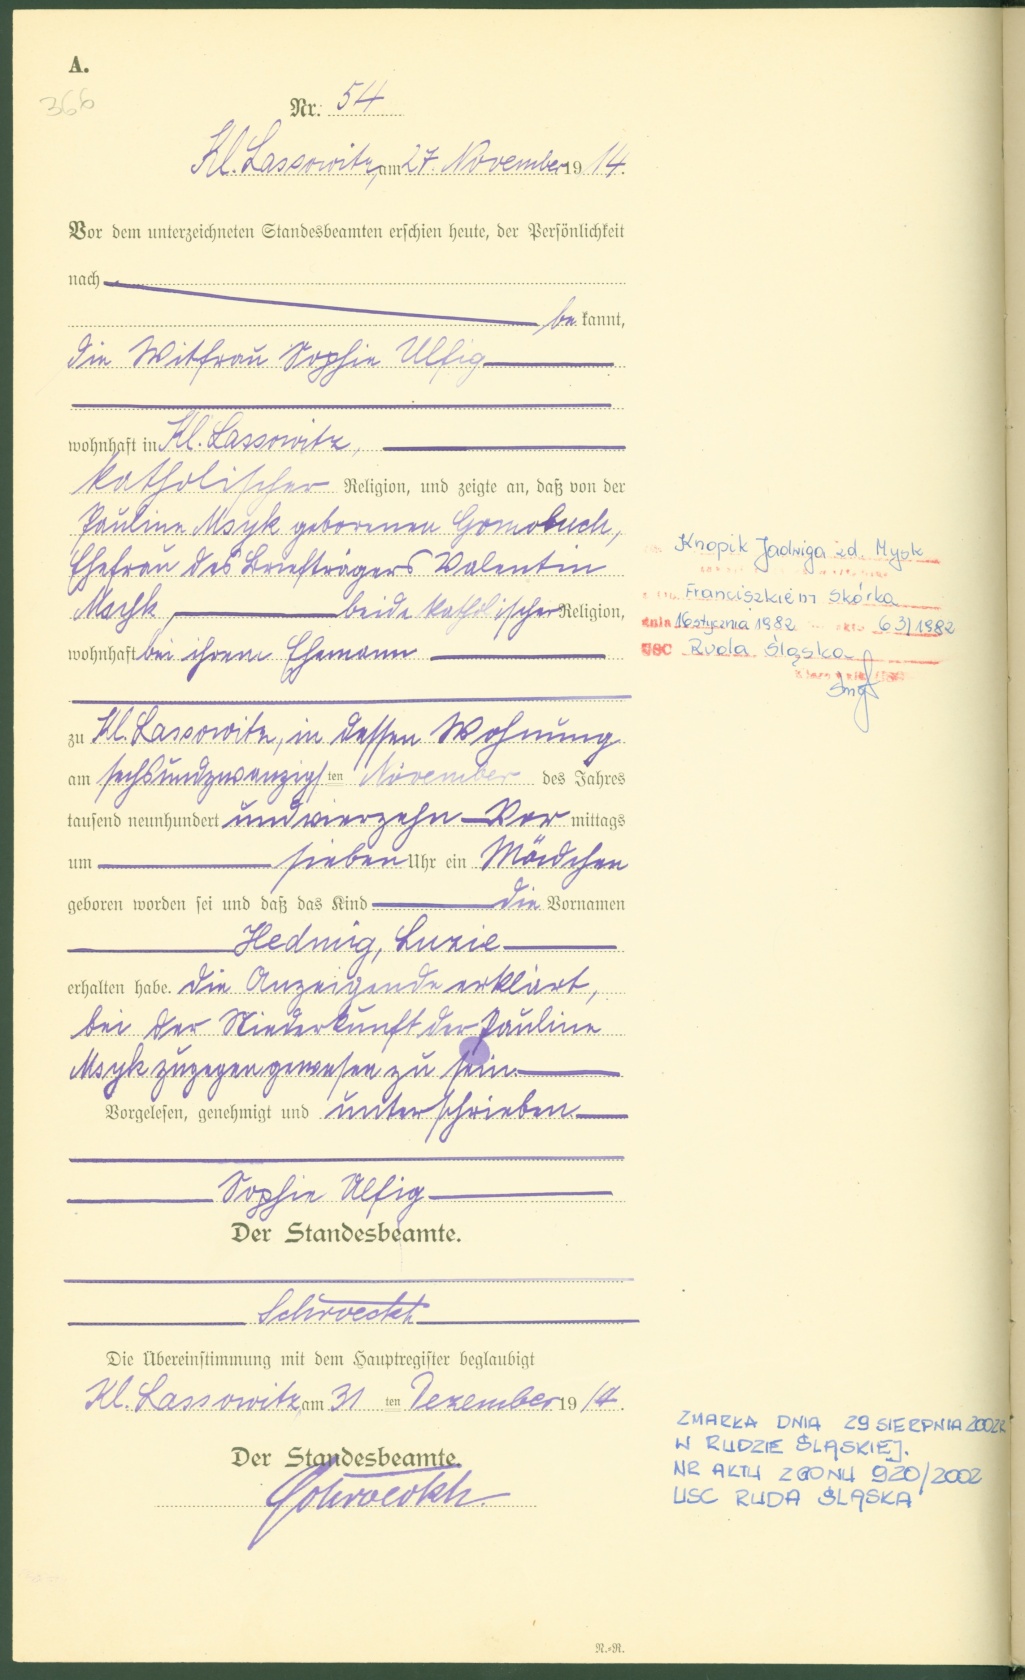 A.
366
Nr. 54
Kl. Lassowitz, am 27. November 1914.
Vor dem unterzeichneten Standesbeamten erschien heute, der Persönlichkeit
nach
be kannt,
die Witfrau Sophie Ulfig
wohnhaft in Kl. Lassowitz,
katholischer Religion, und zeigte an, daß von der
Pauline Msyk geborenen
Ehefrau des Briefträgers Valentin
Msyk, beide katholischer Religion,
wohnhaft bei ihrem Ehemann
zu Kl. Lassowitz, in dessen Wohnung
am sechsundzwanzigsten November des Jahres
tausend neunhundert undvierzehn Vor mittags
um sieben Uhr ein Mädchen
geboren worden sei und daß das Kind die Vornamen
Hedwig, Luzie
erhalten habe. die Anzeigende erklärt,
bei der Niederkunft der Pauline
Msyk zugegen gewesen zu sein.
Vorgelesen, genehmigt und unterschrieben
Sophie Ulfig
Der Standesbeamte.
Die Übereinstimmung mit dem Hauptregister beglaubigt
Kl. Lassowitz, am 31 ten Dezember 1914.
Der Standesbeamte.
R.-R.
Knopik Jadwiga zd. Mysk
Franciszkiem Skórka
dnia 16 stycznia 1982 aktu 63/1982
USC Ruda Śląska
ZMARŁA DNIA 29 SIERPNIA 2002R
W RUDZIE ŚLĄSKIEJ.
NR AKTU ZGONU 920/2002
USC RUDA ŚLĄSKA